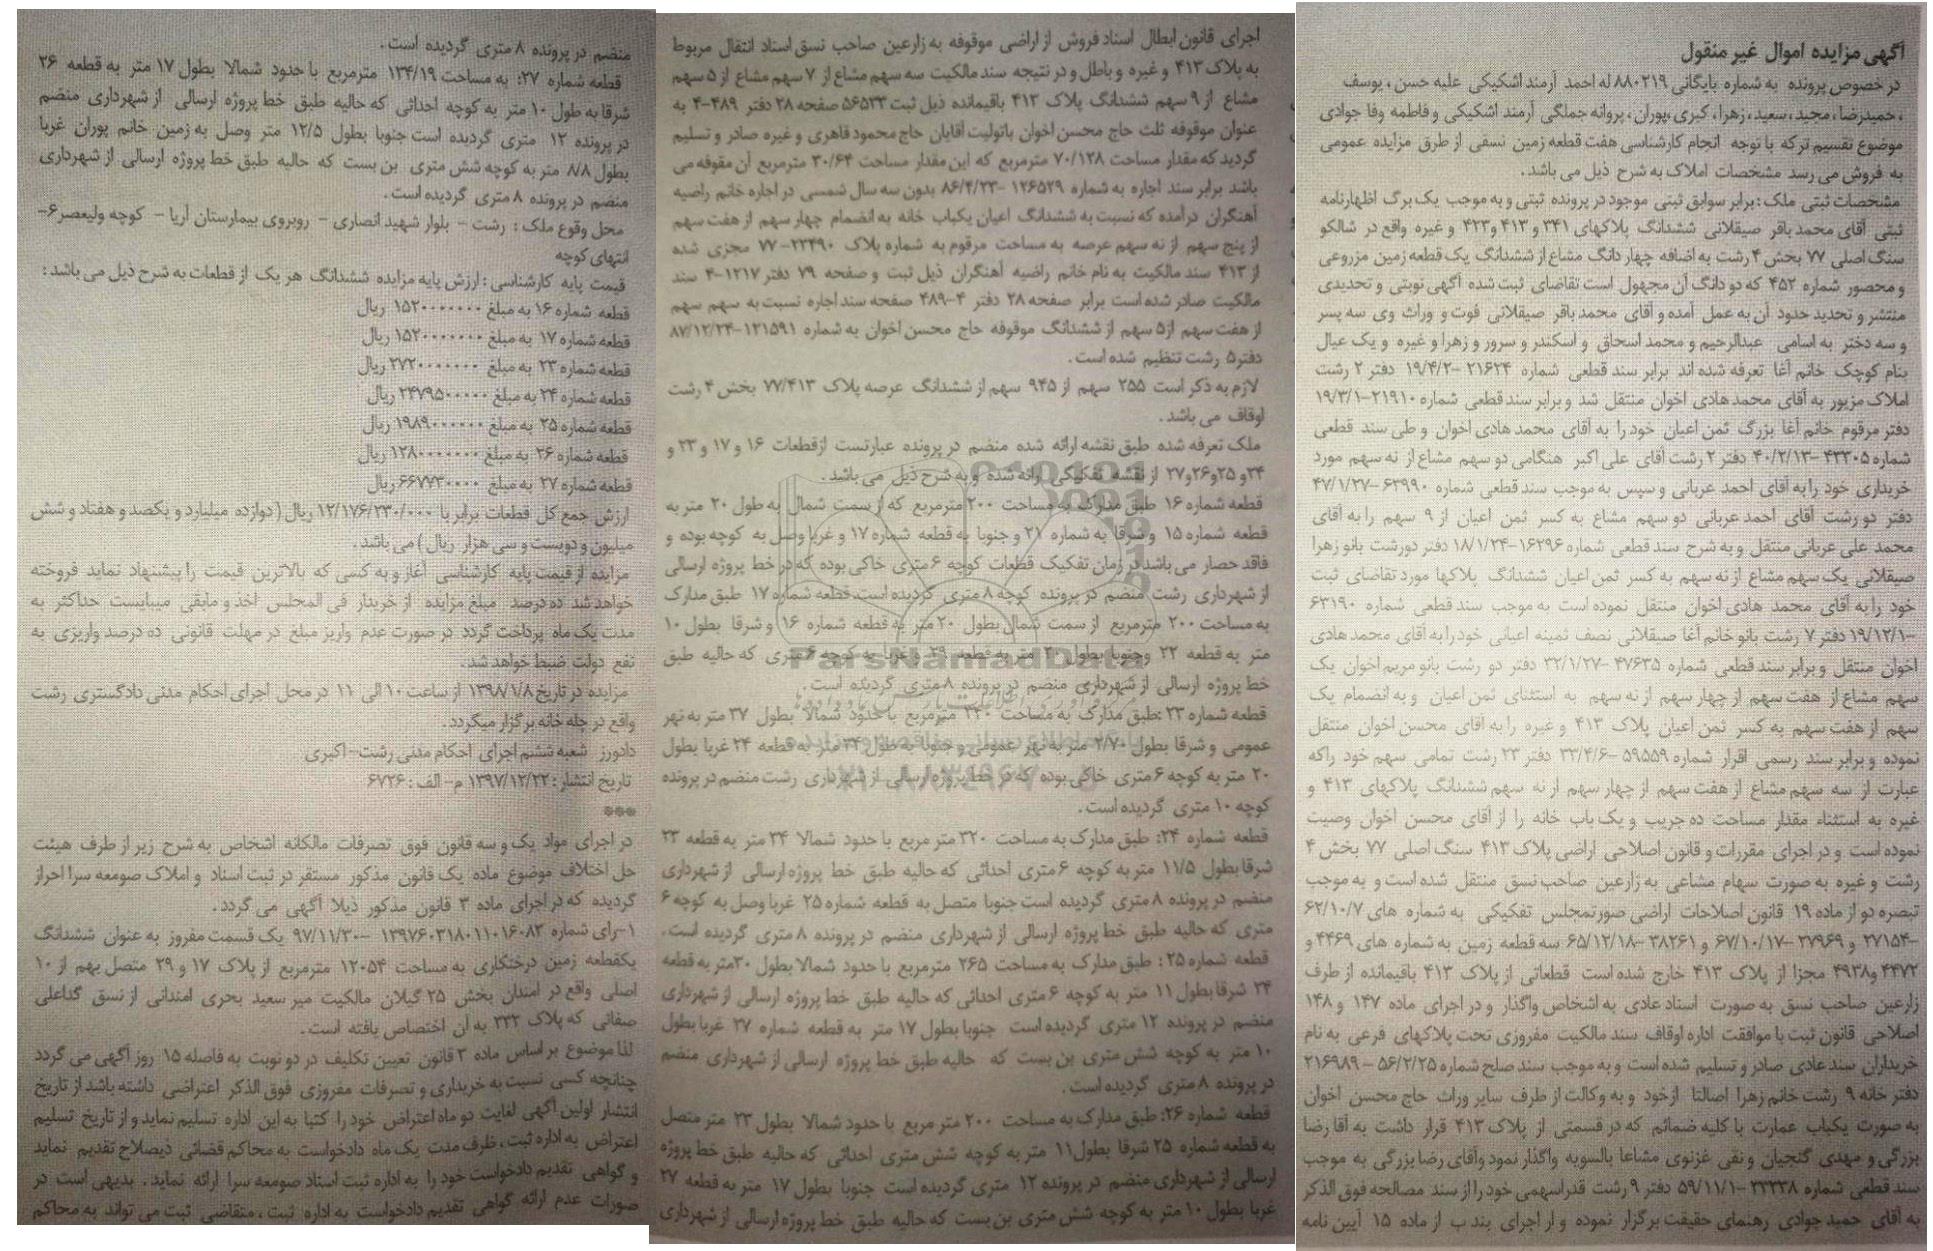 آگهی مزایده اموال غیر منقول
در خصوص پرونده به شماره بایگانی ۸۸۰۲۱۹ له احمد آرمند اشکیکی علیه حسن ، یوسف
، حمیدرضا ، مجید ، سعید ، زهرا ، کبری ،پوران ، پروانه جملگی آرمند اشکیکی و فاطمه وفا جوادی
موضوع تقسیم ترکه با توجه انجام کارشناسی هفت قطعه زمین نسقی از طرق مزایده عمومی
به فروش می رسد مشخصات املاک به شرح ذیل می باشد .
مشخصات ثبتی ملک : برابر سوابق ثبتی موجود در پرونده ثبتی و به موجب یک برگ اظهارنامه
ثبتی آقای محمد باقر صیقلانی ششدانگ پلاکهای ۳۴۱ و ۴۱۳ و ۴۲۳ و غیره واقع در شالکو
سنگ اصلی ۷۷ بخش ۴ رشت به اضافه چهار دانگ مشاع از ششدانگ یک قطعه زمین مزروعی
و محصور شماره ۴۵۲ که دو دانگ آن مجهول است تقاضای ثبت شده آگهی نوبتی و تحدیدی
منتشر و تحدید حدود آن به عمل آمده و آقای محمد باقر صیقلانی فوت و وراث وی سه پسر
و سه دختر به اسامی عبدالرحیم و محمد اسحاق و اسکندر و سرور و زهرا و غیره و یک عیال
بنام کوچک خانم آغا تعرفه شده اند برابر سند قطعی شماره ۲۱۶۲۴ -۱۹/۴/۲ دفتر ۲ رشت
املاک مزبور به آقای محمد هادی اخوان منتقل شد و برابر سند قطعی شماره ۲۱۹۱۰-۱۹/۳/۱
دفتر مرقوم خانم آغا بزرگ ثمن اعیان خود را به آقای محمد هادی اخوان و طی سند قطعی
شماره ۴۳۳۰۵ -۴۰/۲/۱۳ دفتر ۲ رشت آقای علی اکبر هنگامی دو سهم مشاع از نه سهم مورد
خریداری خود را به آقای احمد عربانی و سپس به موجب سند قطعی شماره ۶۲۹۹۰-۴۷/۱/۲۷
دفتر دو رشت آقای احمد عربانی دو سهم مشاع به کسر ثمن اعیان از ۹ سهم را به آقای
محمد علی عربانی منتقل و به شرح سند قطعی شماره ۱۶۲۹۶-۱۸/۱/۲۴ دفتر دورشت بانو زهرا
صیقلانی یک سهم مشاع از نه سهم به کسر ثمن اعیان ششدانگ پلاکها مورد تقاضای ثبت
خود را به آقای محمد هادی اخوان منتقل نموده است به موجب سند قطعی شماره ۶۳۱۹۰
-۱۹/۱۲/۱ دفتر ۷ رشت بانو خانم آغا صیقلانی نصف ثمینه اعیانی خود را به آقای محمد هادی
اخوان منتقل و برابر سند قطعی شماره ۴۷۶۳۵ -۳۲/۱/۲۷ دفتر دو رشت بانو مریم اخوان یک
سهم مشاع از هفت سهم از چهار سهم از نه سهم به استثنای ثمن اعیان و به انضمام یک
سهم از هفت سهم به کسر ثمن اعیان پلاک ۴۱۳ و غیره را به آقای محسن اخوان منتقل
نموده و برابر سند رسمی اقرار شماره ۵۹۵۵۹ -۳۳/۴/۶ دفتر ۲۳ رشت تمامی سهم خود راکه
عبارت از سه سهم مشاع از هفت سهم از چهار سهم از نه سهم ششدانگ پلاکهای ۴۱۳ و
غیره به استثناء مقدار مساحت ده جریب و یک باب خانه را از آقای محسن اخوان وصیت
نموده است و در اجرای مقررات و قانون اصلاحی اراضی پلاک ۴۱۳ سنگ اصلی ۷۷ بخش ۴
رشت و غیره به صورت سهام مشاعی به زارعین صاحب نسق منتقل شده است و به موجب
تبصره دو از ماده ۱۹ قانون اصلاحات اراضی صورتمجلس تفکیکی به شماره های ۶۲/۱۰/۷
-۲۷۱۵۴ و ۲۷۹۶۹ -۶۷/۱۰/۱۷ و ۳۸۲۶۱ -۶۵/۱۲/۱۸ سه قطعه زمین به شماره های ۴۴۶۹ و
۴۴۷۲ و ۴۹۳۸ مجزا از پلاک ۴۱۳ خارج شده است قطعاتی از پلاک ۴۱۳ باقیمانده از طرف
زارعین صاحب نسق به صورت اسناد عادی به اشخاص واگذار و در اجرای ماده ۱۴۷ و ۱۴۸
اصلاحی قانون ثبت با موافقت اداره اوقاف سند مالکیت مفروزی تحت پلاکهای فرعی به نام
خریداران سند عادی صادر و تسلیم شده است و به موجب سند صلح شماره ۵۶/۲/۲۵ - ۲۱۶۹۸۹
دفتر خانه ۹ رشت خانم زهرا اصالتا ازخود و به وکالت از طرف سایر وراث حاج محسن اخوان
به صورت یکباب عمارت با کلیه ضمائم که در قسمتی از پلاک ۴۱۳ قرار داشت به آقا رضا
بزرگی و مهدی گنجیان و نقی غزنوی مشاعا بالسویه واگذار نمود وآقای رضا بزرگی به موجب
سند قطعی شماره ۳۳۳۳۸ -۵۹/۱۱/۱ دفتر ۹ رشت قدراسهمی خود را از سند مصالحه فوق الذکر
به آقای حمید جوادی رهنمای حقیقت برگزار نموده و از اجرای بند ب از ماده ۱۵ آیین نامه
اجرای قانون ابطال اسناد فروش از اراضی موقوفه به زارعین صاحب نسق اسناد انتقال مربوط
به پلاک ۴۱۳ و غیره و باطل و در نتیجه سند مالکیت سه سهم مشاع از ۷ سهم مشاع از ۵ سهم
مشاع از ۹ سهم ششدانگ پلاک ۴۱۳ باقیمانده ذیل ثبت ۵۶۵۳۳ صفحه ۲۸ دفتر ۴۸۹-۴ به
عنوان موقوفه ثلث حاج محسن اخوان باتولیت آقایان حاج محمود قاهری و غیره صادر و تسلیم
گردید که مقدار مساحت ۷۰/۱۲۸ مترمربع که این مقدار مساحت ۳۰/۶۴ مترمربع آن مقوفه می
باشد برابر سند اجاره به شماره ۱۲۶۵۲۹ -۸۶/۴/۲۳ بدون سه سال شمسی در اجاره خانم راضیه
آهنگران درآمده که نسبت به ششدانگ اعیان یکباب خانه به انضمام چهار سهم از هفت سهم
از پنج سهم از نه سهم عرصه به مساحت مرقوم به شماره پلاک ۲۳۴۹۰- ۷۷ مجزی شده
از ۴۱۳ سند مالکیت به نام خانم راضیه آهنگران ذیل ثبت و صفحه ۷۹ دفتر ۱۲۱۷-۴ سند
مالکیت صادر شده است برابر صفحه ۲۸ دفتر ۴-۴۸۹ صفحه سند اجاره نسبت به سهم سهم
از هفت سهم از۵ سهم از ششدانگ موقوفه حاج محسن اخوان به شماره ۱۳۱۵۹۱ -۸۷/۱۲/۲۴
دفتر۵ رشت تنظیم شده است .
لازم به ذکر است ۲۵۵ سهم از ۹۴۵ سهم از ششدانگ عرصه پلاک ۷۷/۴۱۳ بخش ۴ رشت
اوقاف می باشد .
ملک تعرفه شده طبق نقشه ارائه شده منضم در پرونده عبارتست ازقطعات ۱۶ و ۱۷ و ۲۳ و
۲۴و ۲۵و۲۶و۲۷ از نقشه تفکیکی ارائه شده و به شرح ذیل می باشد .
قطعه شماره ۱۶ طبق مدارک به مساحت ۲۰۰ مترمربع که از سمت شمال به طول ۲۰ متر به
قطعه شماره ۱۵ وشرقا به شماره ۲۱ و جنوبا به قطعه شماره ۱۷ و غربا وصل به کوچه بوده و
فاقد حصار می باشد در زمان تفکیک قطعات کوچه ۶ متری خاکی بوده که در خط پروژه ارسالی
از شهرداری رشت منضم در پرونده کوچه ۸ متری گردیده است. قطعه شماره ۱۷ طبق مدارک
به مساحت ۲۰۰ مترمربع از سمت شمال بطول ۲۰ متر به قطعه شماره ۱۶ و شرقا بطول ۱۰
متر به قطعه ۲۲ وجنوبا بطول ۲۰ متر به قطعه ۲۹ و غربا به کوچه ۶ متری که حالیه طبق
خط پروژه ارسالی از شهرداری منضم در پرونده ۸ متری گردیده است .
قطعه شماره ۲۳ :طبق مدارک به مساحت ۳۴۰ مترمربع با حدود شمالا بطول ۳۷ متر به نهر
عمومی و شرقا بطول ۲/۷۰ متر به نهر عمومی و جنوبا به طول ۳۴ متر به قطعه ۲۴ غربا بطول
۲۰ متر به کوچه ۶ متری خاکی بوده که در خط پروژه ارسالی از شهرداری رشت منضم در پرونده
کوچه ۱۰ متری گردیده است .
قطعه شماره ۲۴: طبق مدارک به مساحت ۳۲۰ متر مربع با حدود شمالا ۳۴ متر به قطعه ۲۳
شرقا بطول ۱۱/۵ متر به کوچه ۶ متری احداثی که حالیه طبق خط پروژه ارسالی از شهرداری
منضم در پرونده ۸ متری گردیده است جنوبا متصل به قطعه شماره ۲۵ غربا وصل به کوچه ۶
متری که حالیه طبق خط پروژه ارسالی از شهرداری منضم در پرونده ۸ متری گردیده است.
قطعه شماره ۲۵ : طبق مدارک به مساحت ۲۶۵ مترمربع با حدود شمالا بطول ۳۰متر به قطعه
۲۴ شرقا بطول ۱۱ متر به کوچه ۶ متری احداثی که حالیه طبق خط پروژه ارسالی از شهرداری
منضم در پرونده ۱۲ متری گردیده است جنوبا بطول ۱۷ متر به قطعه شماره ۲۷ غربا بطول
۱۰ متر به کوچه شش متری بن بست که حالیه طبق خط پروژه ارسالی از شهرداری منضم
در پرونده ۸ متری گردیده است .
قطعه شماره ۲۶: طبق مدارک به مساحت ۲۰۰ متر مربع با حدود شمالا بطول ۲۳ متر متصل
به قطعه شماره ۲۵ شرقا بطول ۱۱ متر به کوچه شش متری احداثی که حالیه طبق خط پروژه
ارسالی از شهرداری منضم در پرونده ۱۲ متری گردیده است جنوبا بطول ۱۷ متر به قطعه ۲۷
غربا بطول ۱۰ متر به کوچه شش متری بن بست که حالیه طبق خط پروژه ارسالی از شهرداری
منضم در پرونده ۸ متری گردیده است .
قطعه شماره ۲۷: به مساحت ۱۳۴/۱۹ مترمربع با حدود شمالا بطول ۱۷ متر به قطعه ۲۶
شرقا به طول ۱۰ متر به کوچه احداثی که حالیه طبق خط پروژه ارسالی از شهرداری منضم
در پرونده ۱۲ متری گردیده است جنوبا بطول ۱۲/۵ متر وصل به زمین خانم پوران غربا
بطول ۸/۸ متر به کوچه شش متری بن بست که حالیه طبق خط پروژه ارسالی از شهرداری
منضم در پرونده ۸ متری گردیده است .
محل وقوع ملک : رشت - بلوار شهید انصاری - روبروی بیمارستان آریا - کوچه ولیعصر۶-
انتهای کوچه
قیمت پایه کارشناسی : ارزش پایه مزایده ششدانگ هر یک از قطعات به شرح ذیل می باشد :
قطعه شماره ۱۶ به مبلغ ۱۵۲۰۰۰۰۰۰۰ ریال
قطعه شماره ۱۷ به مبلغ ۱۵۲۰۰۰۰۰۰۰ ریال
قطعه شماره ۲۳ به مبلغ ۲۷۲۰۰۰۰۰۰۰ ریال
قطعه شماره ۲۴ به مبلغ ۲۴۷۹۵۰۰۰۰۰ ریال
قطعه شماره ۲۵ به مبلغ ۱۹۸۹۰۰۰۰۰۰ ریال
قطعه شماره ۲۶ به مبلغ ۱۲۸۰۰۰۰۰۰۰ ریال
قطعه شماره ۲۷ به مبلغ ۶۶۷۷۳۰۰۰۰ ریال
ارزش جمع کل قطعات برابر با ۱۲/۱۷۶/۲۳۰/۰۰۰ ریال ( دوازده میلیارد و یکصد و هفتاد و شش
میلیون و دویست و سی هزار ریال ) می باشد .
مزایده از قیمت پایه کارشناسی آغاز و به کسی که بالاترین قیمت را پیشنهاد نماید فروخته
خواهد شد ده درصد مبلغ مزایده از خریدار فی المجلس اخذ و مابقی میبایست حداکثر به
مدت یک ماه پرداخت گردد در صورت عدم واریز مبلغ در مهلت قانونی ده درصد واریزی به
نفع دولت ضبط خواهد شد .
مزایده در تاریخ ۱۳۹۸/۱/۸ از ساعت ۱۰ الی ۱۱ در محل اجرای احکام مدنی دادگستری رشت
واقع در چله خانه برگزار میگردد .
دادورز شعبه ششم اجرای احکام مدنی رشت- اکبری
تاریخ انتشار : ۱۳۹۷/۱۲/۲۲ م- الف : ۶۷۲۶
***
در اجرای مواد یک و سه قانون فوق تصرفات مالکانه اشخاص به شرح زیر از طرف هیئت
حل اختلاف موضوع ماده یک قانون مذکور مستقر در ثبت اسناد و املاک صومعه سرا احراز
گردیده که در اجرای ماده ۳ قانون مذکور ذیلا آگهی می گردد .
۱-رای شماره ۱۳۹۷۶۰۳۱۸۰۱۱۰۱۶۰۸۲ -۹۷/۱۱/۳۰ یک قسمت مفروز به عنوان ششدانگ
یکقطعه زمین درختکاری به مساحت ۱۲۰۵۴ مترمربع از پلاک ۱۷ و ۲۹ متصل بهم از ۱۰
اصلی واقع در امندان بخش ۲۵ گیلان مالکیت میر سعید بحری امندانی از نسق گداعلی
صفائی که پلاک ۳۳۲ به آن اختصاص یافته است .
لذا موضوع بر اساس ماده ۳ قانون تعیین تکلیف در دو نوبت به فاصله ۱۵ روز آگهی می گردد
چنانچه کسی نسبت به خریداری و تصرفات مفروزی فوق الذکر اعتراضی داشته باشد از تاریخ
انتشار اولین آگهی لغایت دو ماه اعتراض خود را کتبا به این اداره تسلیم نماید و از تاریخ تسلیم
اعتراض به اداره ثبت ، ظرف مدت یک ماه دادخواست به محاکم قضائی ذیصلاح تقدیم نماید
و گواهی تقدیم دادخواست خود را به اداره ثبت اسناد صومعه سرا ارائه نماید . بدیهی است در
صورات عدم ارائه گواهی تقدیم دادخواست به اداره ثبت ، متقاضی ثبت می تواند به محاکم
ParsNamadData